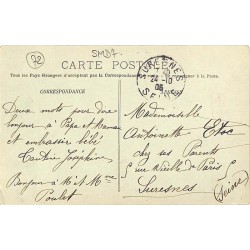 72
SMD7
CARTE POSTALE
Tous les Pays Étrangers n'acceptent pas la Correspondance
à la Poste.
SURESNES
24-10
06
SEINE
CORRESPONDANCE
Deux mots pour dire
bonjour à Papa et Maman
et embrasser bébé
Tantine Joséphine
Bonjour à M. et Mme
Poulet
Mademoiselle
Antoinette Etoc
chez ses Parents
rue de Paris
Suresnes
(Seine)